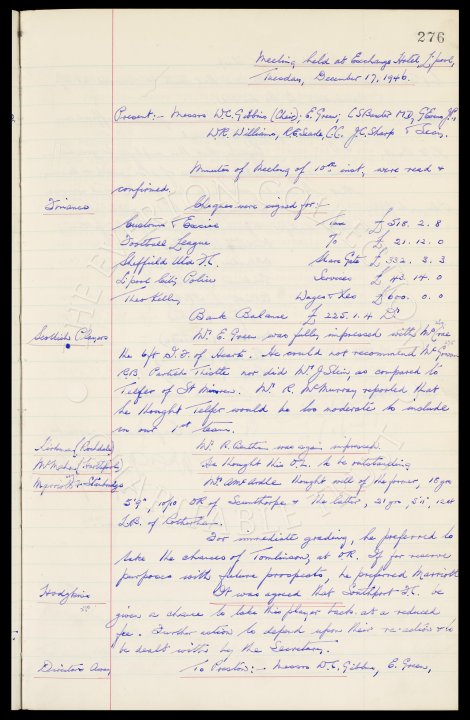 276
Meeting held at Exchange Hotel, L'pool,
Tuesday, December 17, 1946.
Present:- Messrs W.C. Gibbins (Chair), E. Green, C.S. Baxter M.D., G. Evans J.P.,
W.R. Williams, R.E. Searle, C.C. J.C. Sharp & Secy.
Minutes of Meeting of 10th inst, were read &
confirmed.
Finance
Cheques were signed for:-
Customs & Excise Tax £ 518. 2. 8
Football League To £ 21. 12. 0
Sheffield Utd F.C. Share Gate £ 332. 3. 3
L'pool City Police Services £ 43. 14. 0
Theo Kelly Wages & £600. 0. 0
Bank Balance £ 225. 1. 4 Dr
Scottish Players
Mr. E. Green was fully impressed with
the 6ft of Hearts. He could not recommend
R.B. Partick Thistle nor did Mr. J. as compared to
Telfer of St Mirren. Mr. R. McMurray reported that
he thought Telfer would be too moderate to include
in our 1st team.
(Rochdale)
Mr. R. was again impressed.
(Southport)
He thought this O.L. to be outstanding
Mr. thought well of the former, 18 yrs
5' 9", 10/10, OR of Scunthorpe & the latter, 21 yrs, 5' 11", 12st
L.B. of Rotherham.
For immediate grading, he preferred to
take the chances of Tomlinson, at OR. If for reserve
purposes with future prospects, he preferred Marriott
Hodgkins
It was agreed that Southport F.C. be
given a chance to take this player back at a reduced
fee. Further action to depend upon their re-action & to
be dealt with by the Secretary.
Directors Away
To Preston:- Messrs W.C. Gibbins, E. Green,